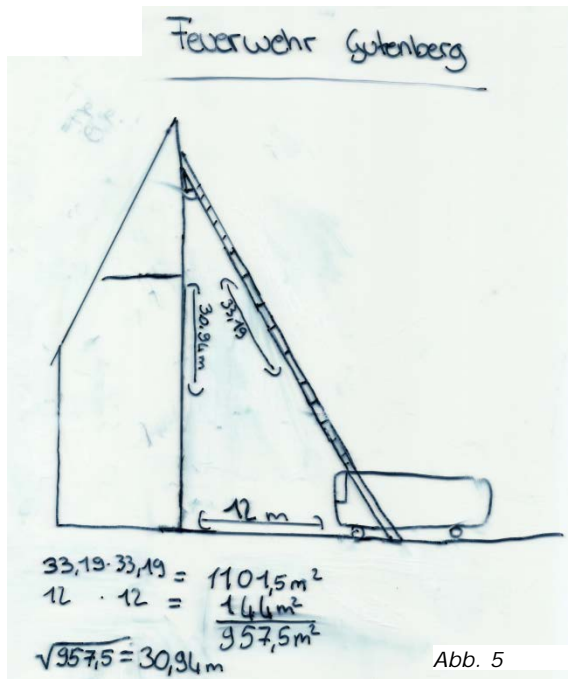 Feuerwehr Gutenberg
30,94m
33,19
12 m
33,19·33,19 = 1101,5m²
12 · 12 = 144m²
957,5m²
√957,5 = 30,94m
Abb. 5